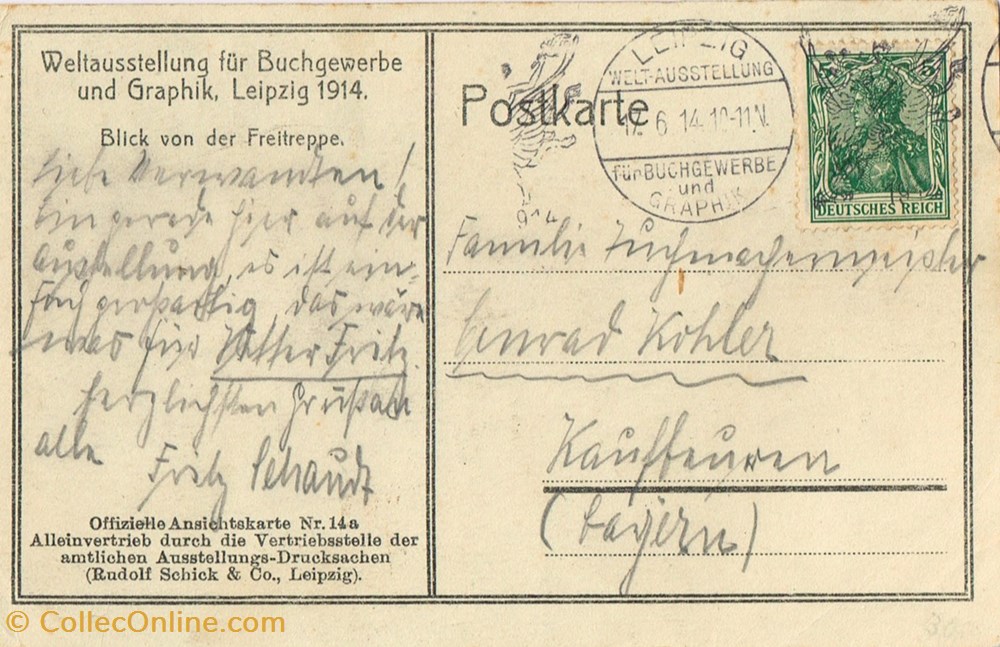 Weltausstellung für Buchgewerbe
und Graphik, Leipzig 1914.
Blick von der Freitreppe.
Liebe Verwandten!
Bin gerade hier auf der
Ausstellung, es ist ein-
fach großartig, das wäre
etwas für Vetter Fritz.
Herzlichsten Gruß an
alle Fritz Schaudt
Offizielle Ansichtskarte Nr. 14a
Alleinvertrieb durch die Vertriebsstelle der
amtlichen Ausstellungs-Drucksachen
(Rudolf Schick & Co., Leipzig).
Postkarte
LEIPZIG
WELT-AUSSTELLUNG
17.6.14.10-11V.
für BUCHGEWERBE
und
GRAPHIK
1914
5 5
DEUTSCHES REICH
Familie Tuchmachermeister
Conrad Kohler
Kaufbeuren
(Bayern)
30
© CollecOnline.com